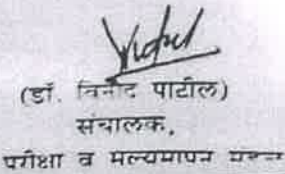 (डॉ. विनोद पाटील)
संचालक,
परीक्षा व मल्यमापन